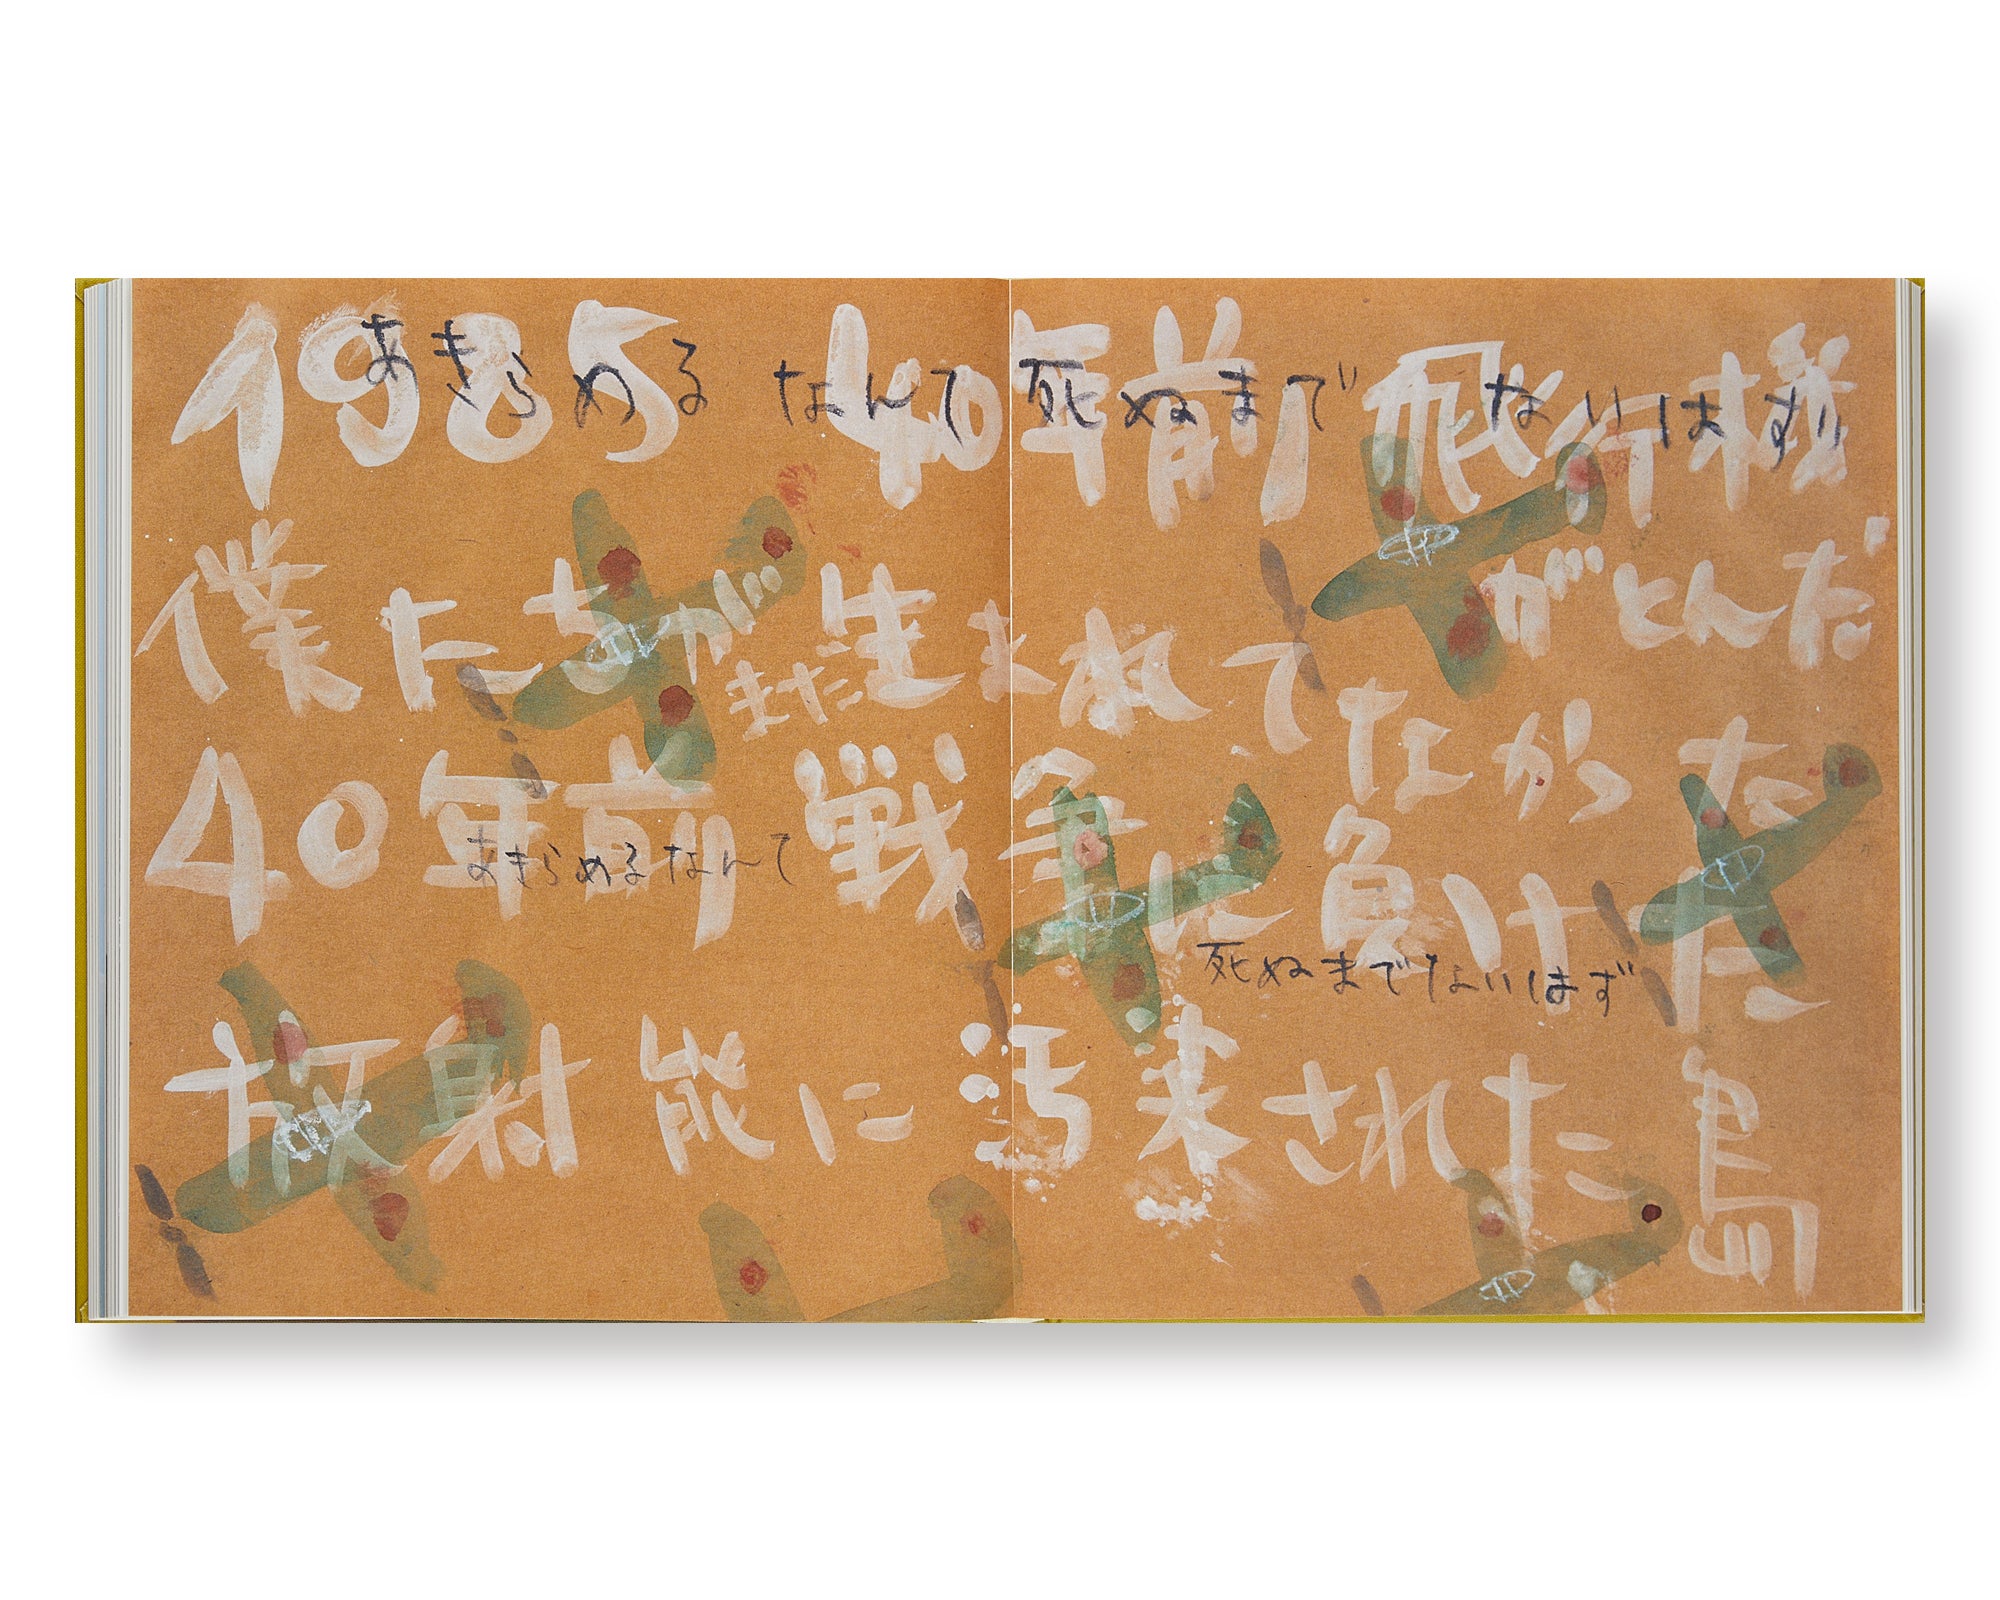 1985 40年前 飛行機
あきらめる なんて 死ぬまで ないはず
がとんだ
僕たちが まだ 生まれてなかった
40年前 戦争に負けた
あきらめるなんて
死ぬまでないはず
放射能に 汚染された 鳥